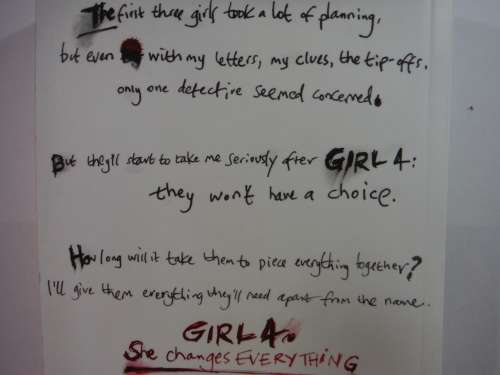 The first three girls took a lot of planning,
but even with my letters, my clues, the tip-offs,
only one detective seemed concerned.
But they'll start to take me seriously after GIRL 4:
they won't have a choice.
How long will it take them to piece everything together?
I'll give them everything they'll need apart from the name.
GIRL 4.
She changes EVERYTHING